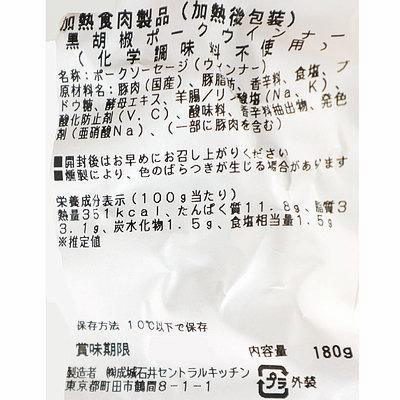 加熱食肉製品（加熱後包装）
黒胡椒ポークウインナー
（化学調味料不使用）
名称：ポークソーセージ（ウィンナー）
原材料名：豚肉（国産）、豚脂肪、香辛料、食塩、ブ
ドウ糖、酵母エキス、羊腸／リン酸塩（Ｎａ、Ｋ）、
酸化防止剤（Ｖ．Ｃ）、酸味料、香辛料抽出物、発色
剤（亜硝酸Ｎａ）、（一部に豚肉を含む）
■開封後はお早めにお召し上がりください
■燻製により、色のばらつきが生じる場合があります
栄養成分表示（１００ｇ当たり）
熱量３５１ｋｃａｌ、たんぱく質１１．８ｇ、脂質３
３．１ｇ、炭水化物１．５ｇ、食塩相当量１．５ｇ
※推定値
保存方法 １０℃以下で保存
賞味期限
内容量 180g
製造者 ㈱成城石井セントラルキッチン
東京都町田市鶴間８－１－１
プラ 外装